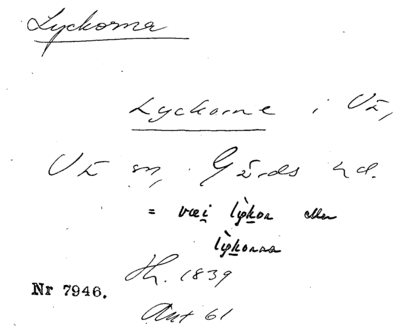 Lyckorna
Lyckorne i Vä,
Vä sn, Gärds hd.
= væi lỳkor eller
lỳkorna
Hh. 1839
Nr 7946.
Ant 61